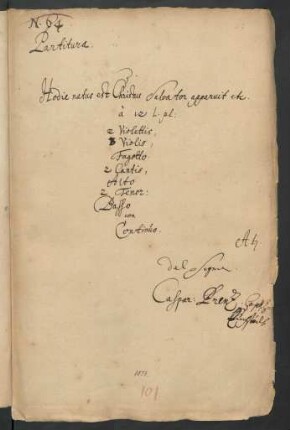 N. 64
Partitura.
Hodie natus est Christus Salvator apparuit etc.
à 12 l. pl.
2 Violettis,
3 Violis,
Fagotto
2 Cantis,
Alto
2 Tenor:
Basso
con
Continuo.
A h
del Sign
Caspar Prenz
101